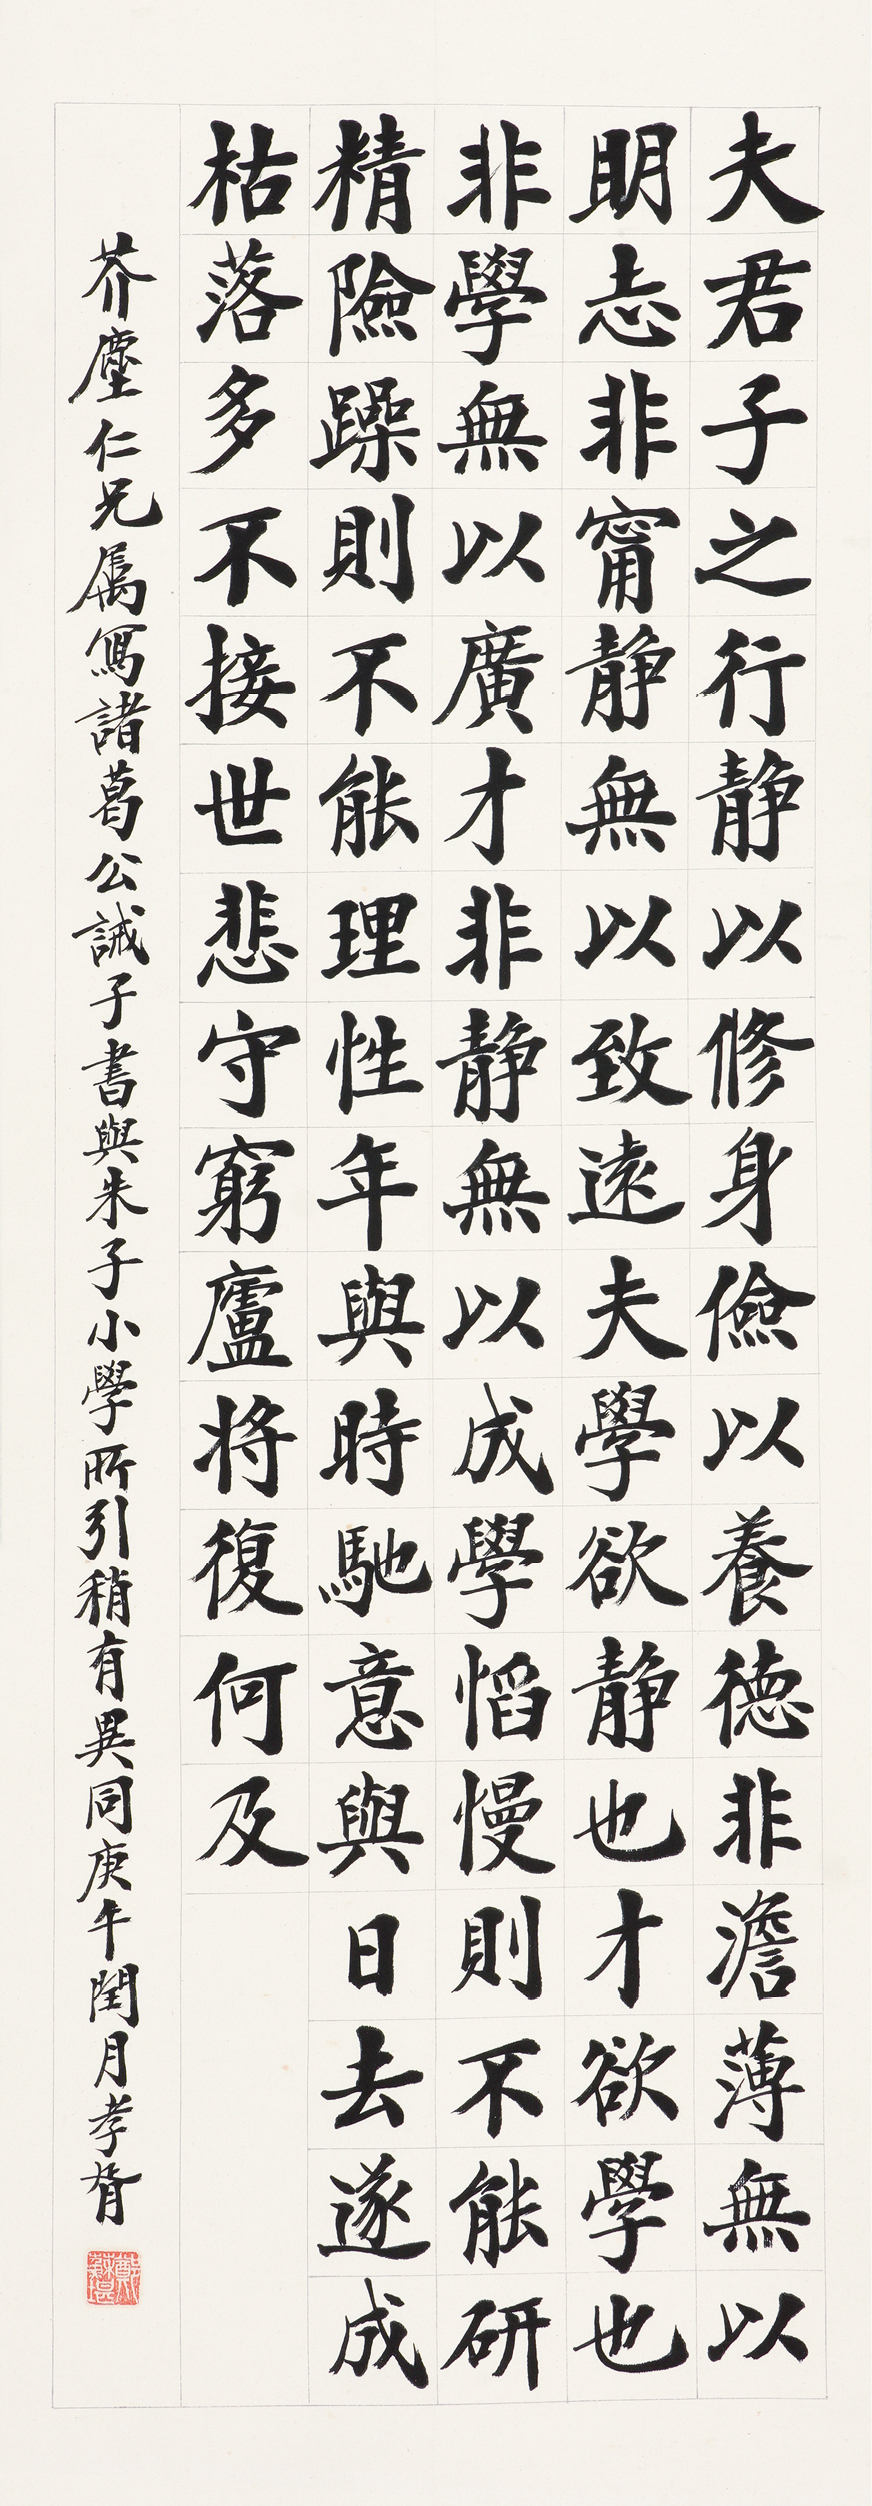 夫君子之行靜以修身儉以養德非澹薄無以
明志非甯靜無以致遠夫學欲靜也才欲學也
非學無以廣才非靜無以成學慆慢則不能研
精險躁則不能理性年與時馳意與日去遂成
枯落多不接世悲守窮廬将復何及
芥塵仁兄属寫諸葛公誡子書與朱子小學所引稍有異同庚午閏月孝胥